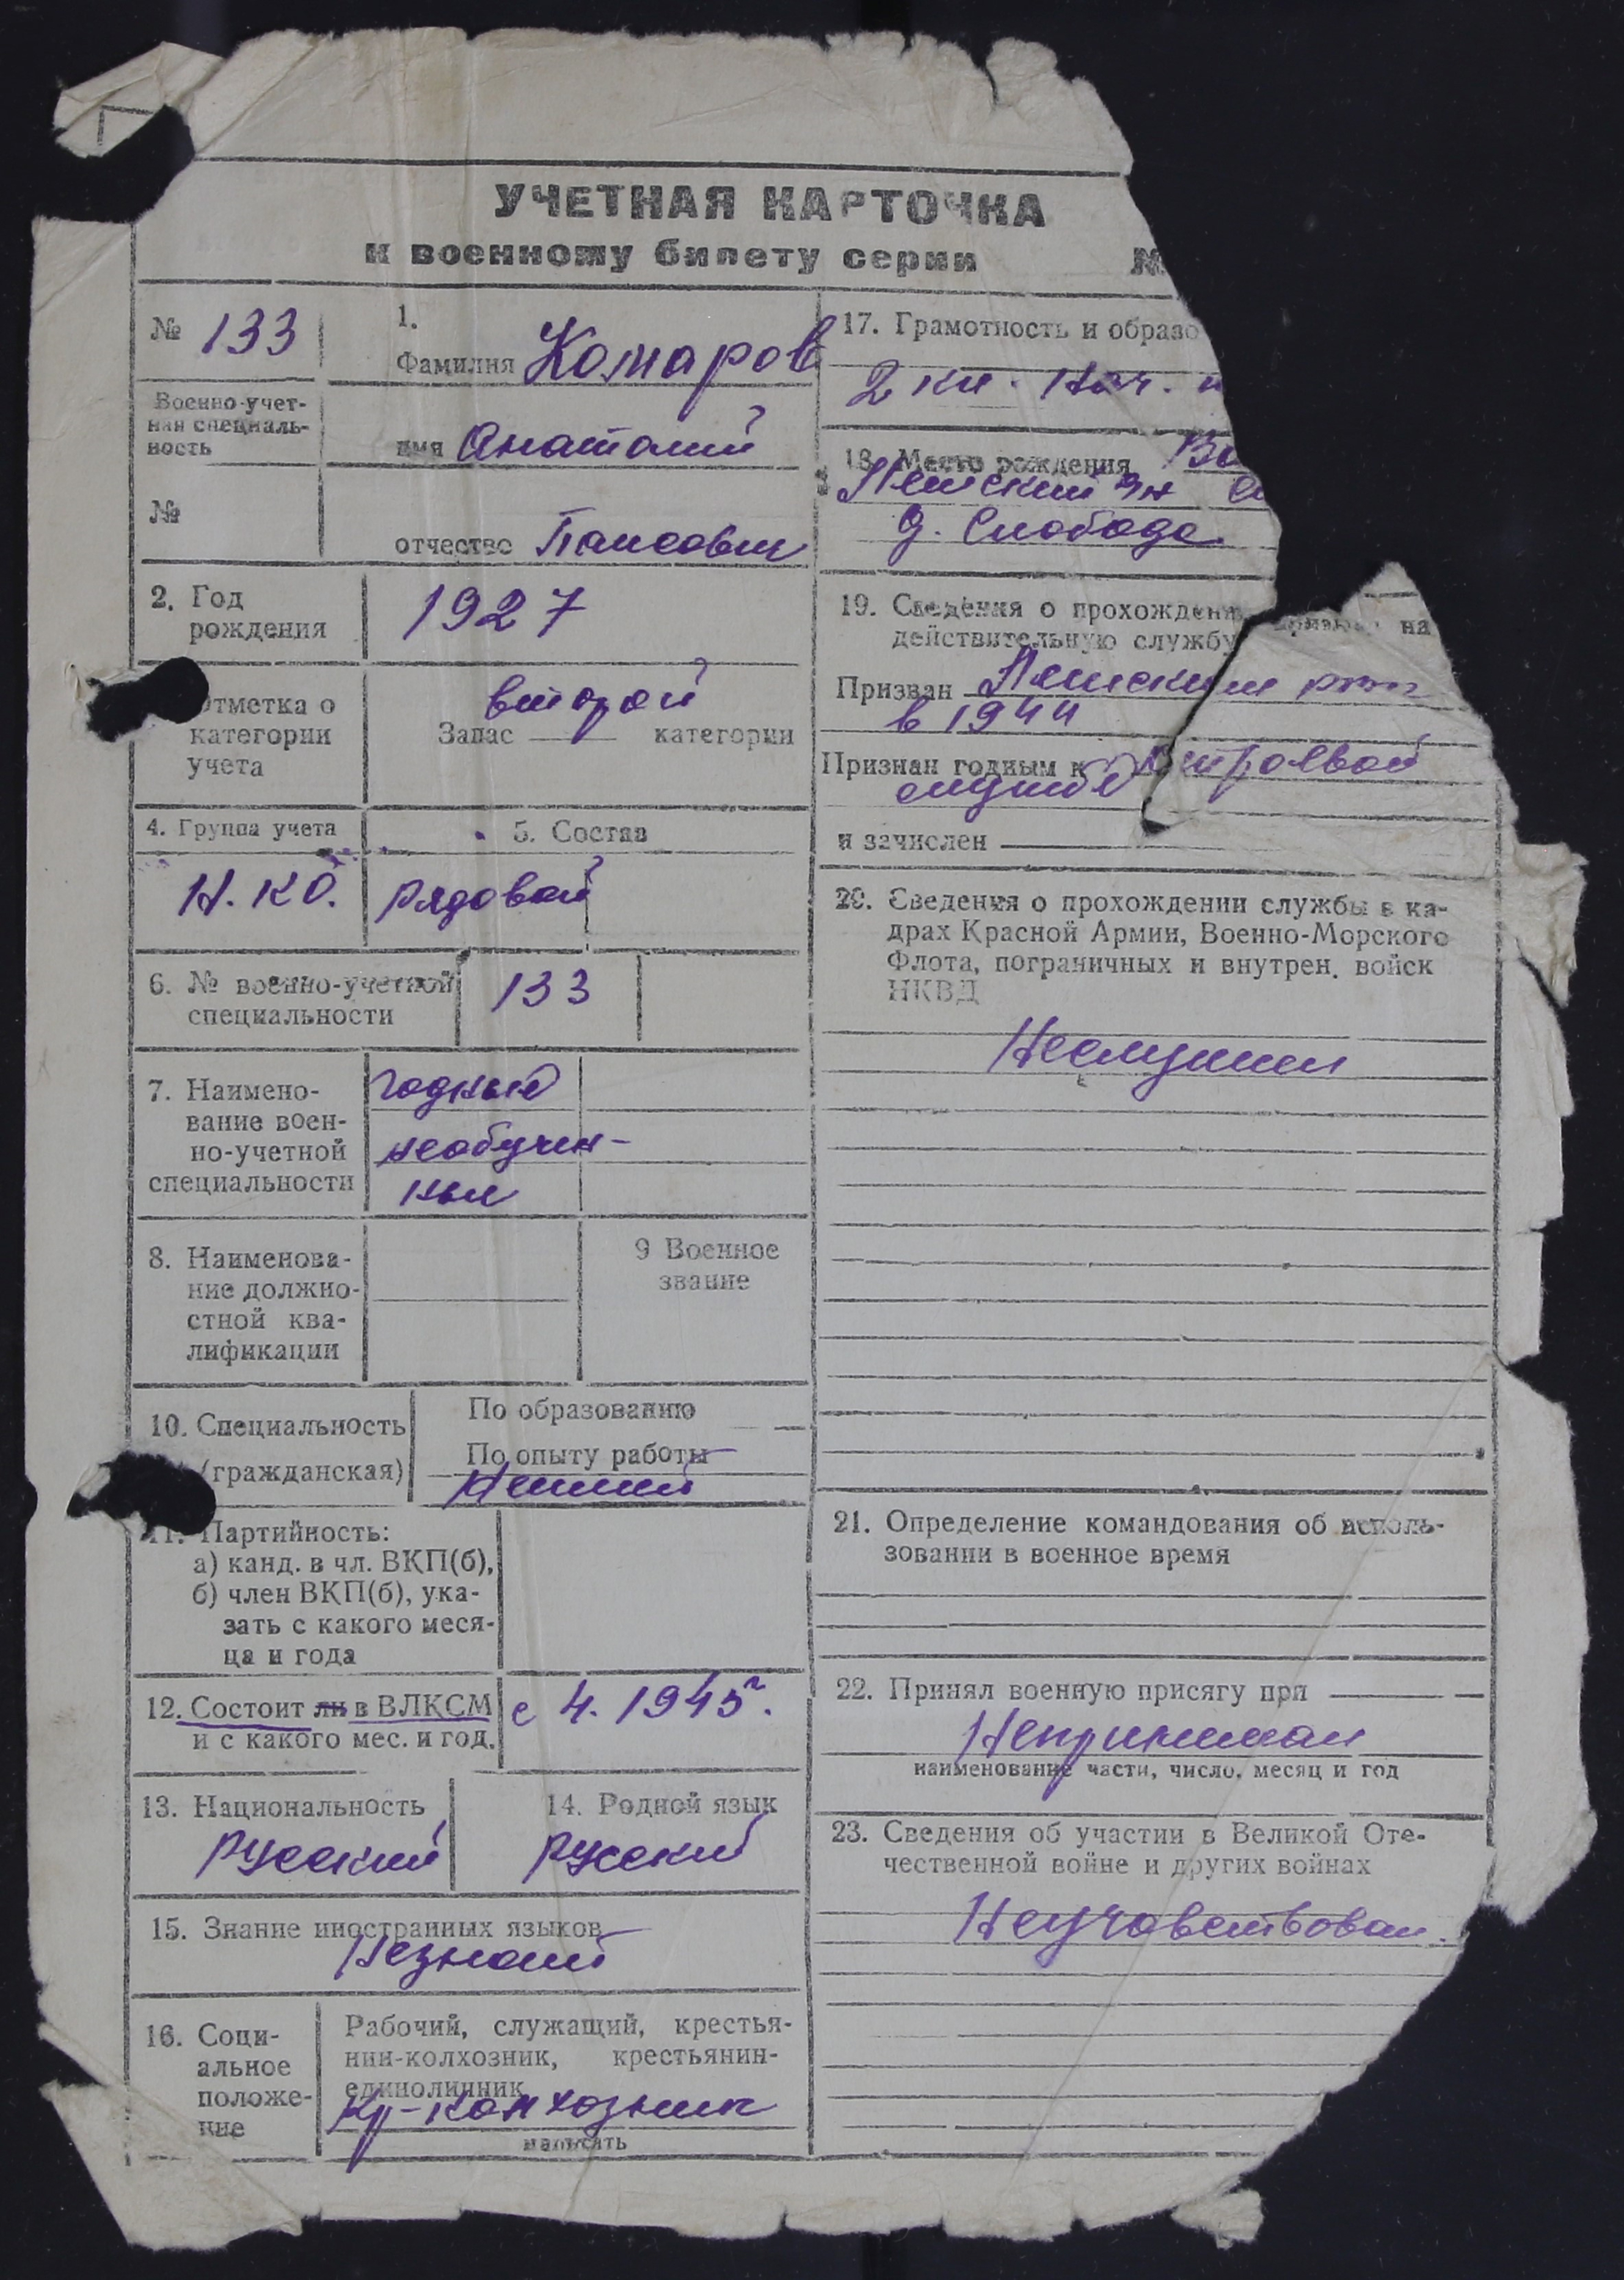 УЧЕТНАЯ КАРТОЧКА
к военному билету серии №
№ 133
1.
Фамилия Комаров
Военно-учет-
ная специаль-
ность
имя Анатолий
№
отчество Паисович
2. Год
рождения
1927
Отметка о
категории
учета
второй
Запас категории
4. Группа учета
Н.КО.
5. Состав
рядовой
6. № военно-учетной
специальности
133
7. Наимено-
вание воен-
но-учетной
специальности
годные
необучен-
ные
8. Наименова-
ние должно-
стной ква-
лификации
9 Военное
звание
10. Специальность
(гражданская)
По образованию
По опыту работы
11. Партийность:
а) канд. в чл. ВКП(б),
б) член ВКП(б), ука-
зать с какого меся-
ца и года
12. Состоит ли в ВЛКСМ
и с какого мес. и год.
с 4. 1945г.
13. Национальность
русский
14. Родной язык
русский
15. Знание иностранных языков
Незнает
16. Соци-
альное
положе-
ние
Рабочий, служащий, крестья-
нин-колхозник, крестьянин-
единоличник
Кр-колхозник
написать
17. Грамотность и образо
2 кл. нач.
18. Место рождения Во
д. Слобода
19. Сведения о прохождени призыва на
действительную службу
Призван
в 1944
Признан годным к строевой
службе
и зачислен
20. Сведения о прохождении службы в ка-
драх Красной Армии, Военно-Морского
Флота, пограничных и внутрен. войск
НКВД
Неслужил
21. Определение командования об исполь-
зовании в военное время
22. Принял военную присягу при
Непринимал
наименование части, число, месяц и год
23. Сведения об участии в Великой Оте-
чественной войне и других войнах
Неучавствовал.